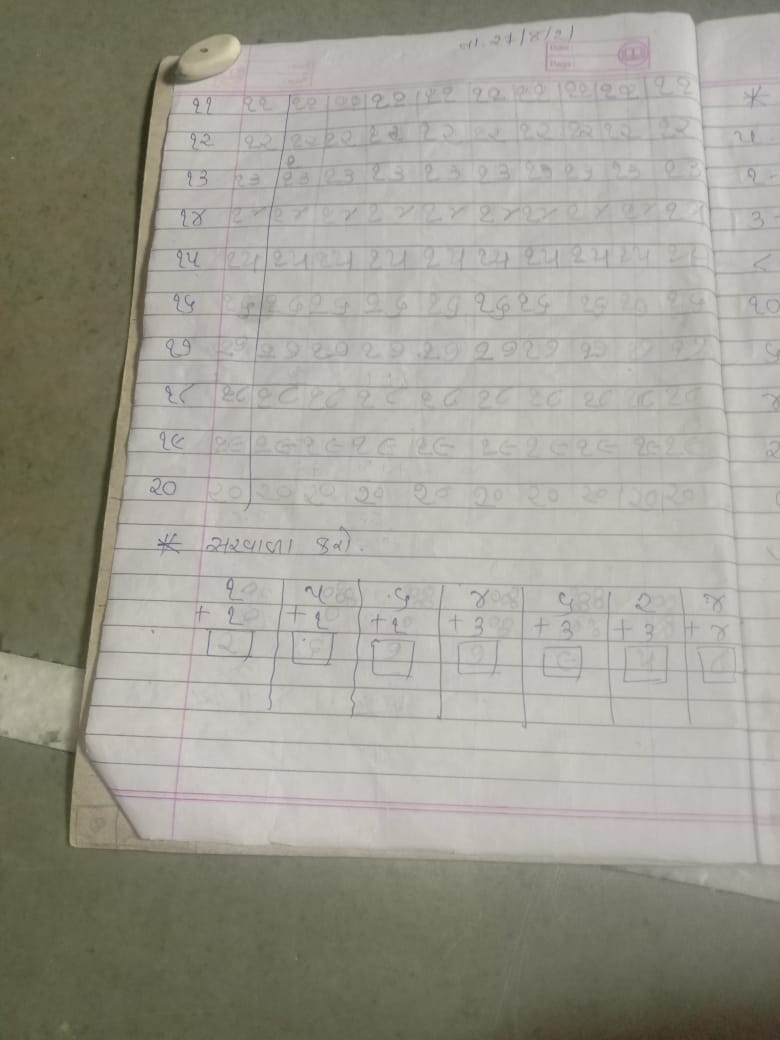 તા. ૨૭/૪/૨૧
Date :
Page :
૧૧ ૧૧ ૧૧ ૧૧ ૧૧ ૧૧ ૧૧ ૧૧ ૧૧ ૧૧ ૧૧
૧૨ ૧૨ ૧૨ ૧૨ ૧૨ ૧૨ ૧૨ ૧૨ ૧૨ ૧૨ ૧૨
૧૩ ૧૩ ૧૩ ૧૩ ૧૩ ૧૩ ૧૩ ૧૩ ૧૩ ૧૩ ૧૩
૧૪ ૧૪ ૧૪ ૧૪ ૧૪ ૧૪ ૧૪ ૧૪ ૧૪ ૧૪ ૧૪
૧૫ ૧૫ ૧૫ ૧૫ ૧૫ ૧૫ ૧૫ ૧૫ ૧૫ ૧૫ ૧૫
૧૬ ૧૬ ૧૬ ૧૬ ૧૬ ૧૬ ૧૬ ૧૬ ૧૬ ૧૬ ૧૬
૧૭ ૧૭ ૧૭ ૧૭ ૧૭ ૧૭ ૧૭ ૧૭ ૧૭ ૧૭ ૧૭
૧૮ ૧૮ ૧૮ ૧૮ ૧૮ ૧૮ ૧૮ ૧૮ ૧૮ ૧૮ ૧૮
૧૯ ૧૯ ૧૯ ૧૯ ૧૯ ૧૯ ૧૯ ૧૯ ૧૯ ૧૯ ૧૯
૨૦ ૨૦ ૨૦ ૨૦ ૨૦ ૨૦ ૨૦ ૨૦ ૨૦ ૨૦ ૨૦
* સરવાળા કરો.
૧ ૫ ૬ ૪ ૬ ૨ ૪
+ ૧ + ૧ + ૧ + ૩ + ૩ + ૩ + ૪
૨ ૬ ૭ ૭ ૯ ૫ ૮